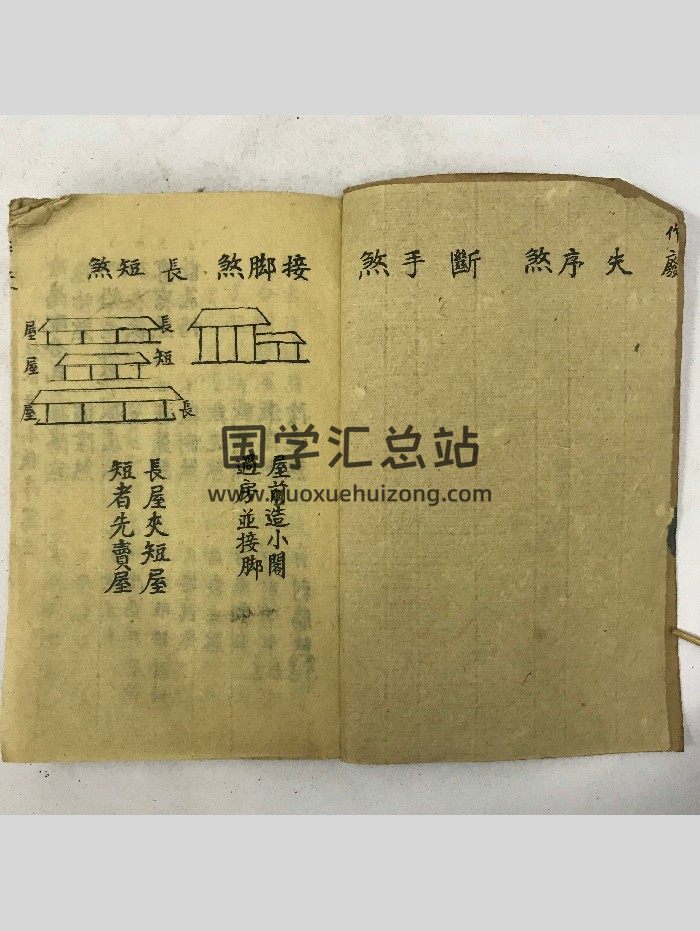 序煞
斷手煞
接脚煞
屋前造小閣
過房並接脚
長短煞
長屋
短屋
長屋
長屋夾短屋
短者先賣屋
国学汇总站
www.guoxuehuizong.com